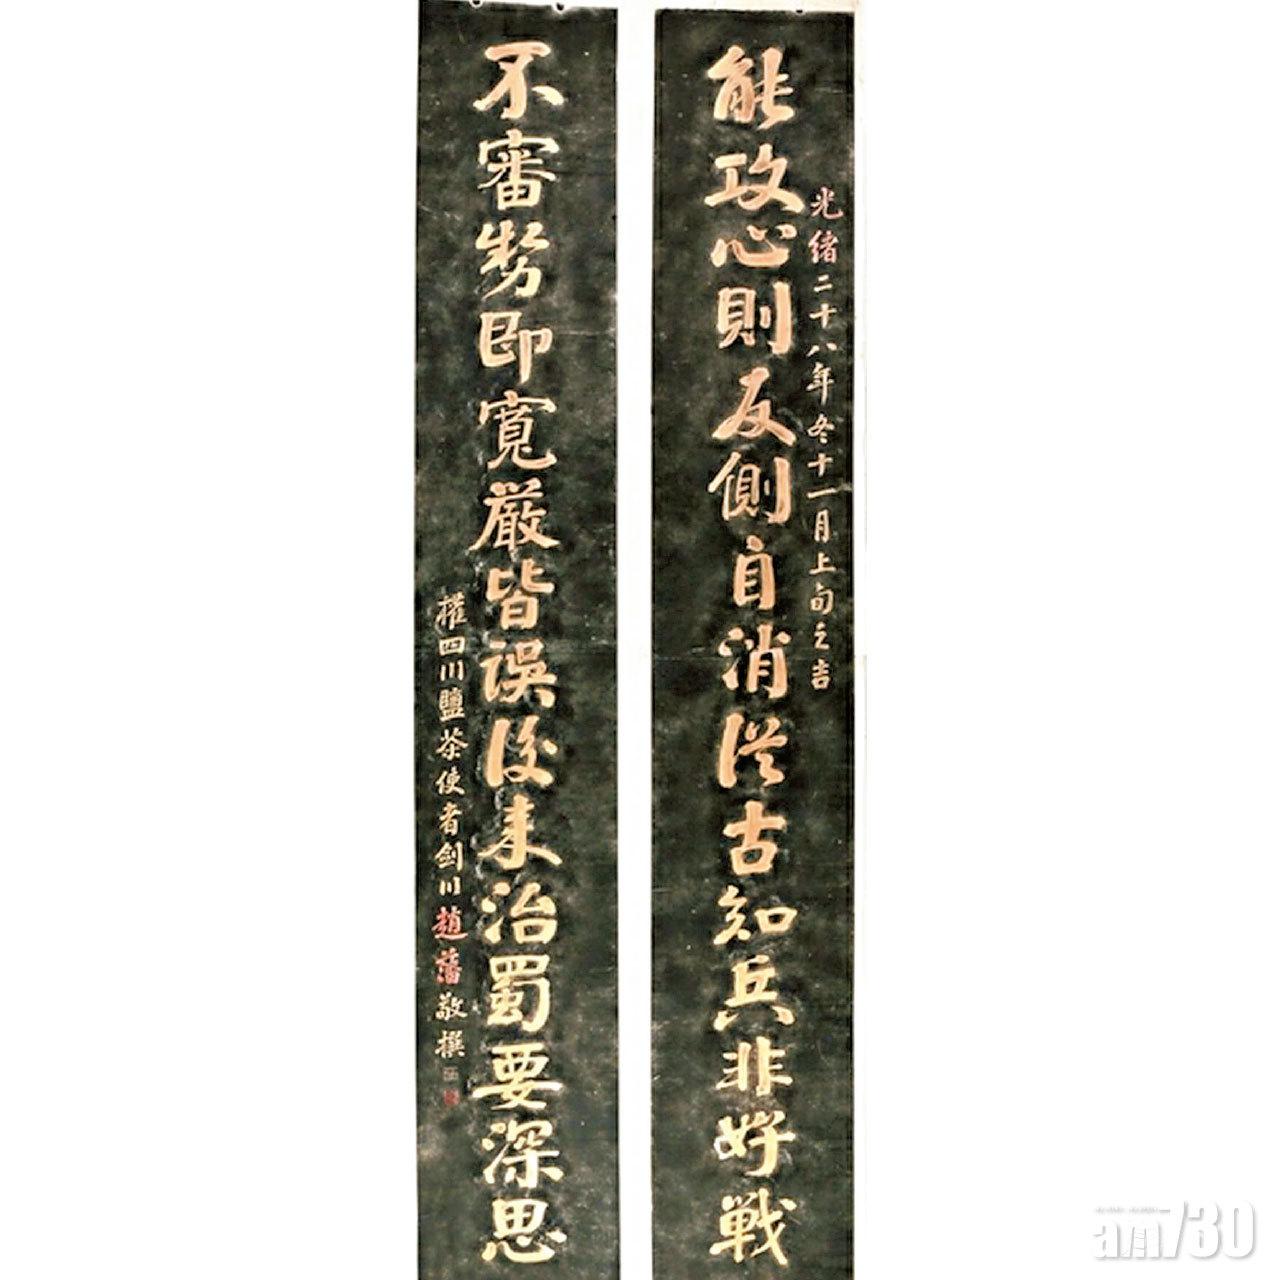 光緒二十八年冬十一月上旬之吉
能攻心則反側自消從古知兵非好戰
不審勢即寬嚴皆誤後來治蜀要深思
權四川鹽茶使者劍川趙藩敬撰
am730